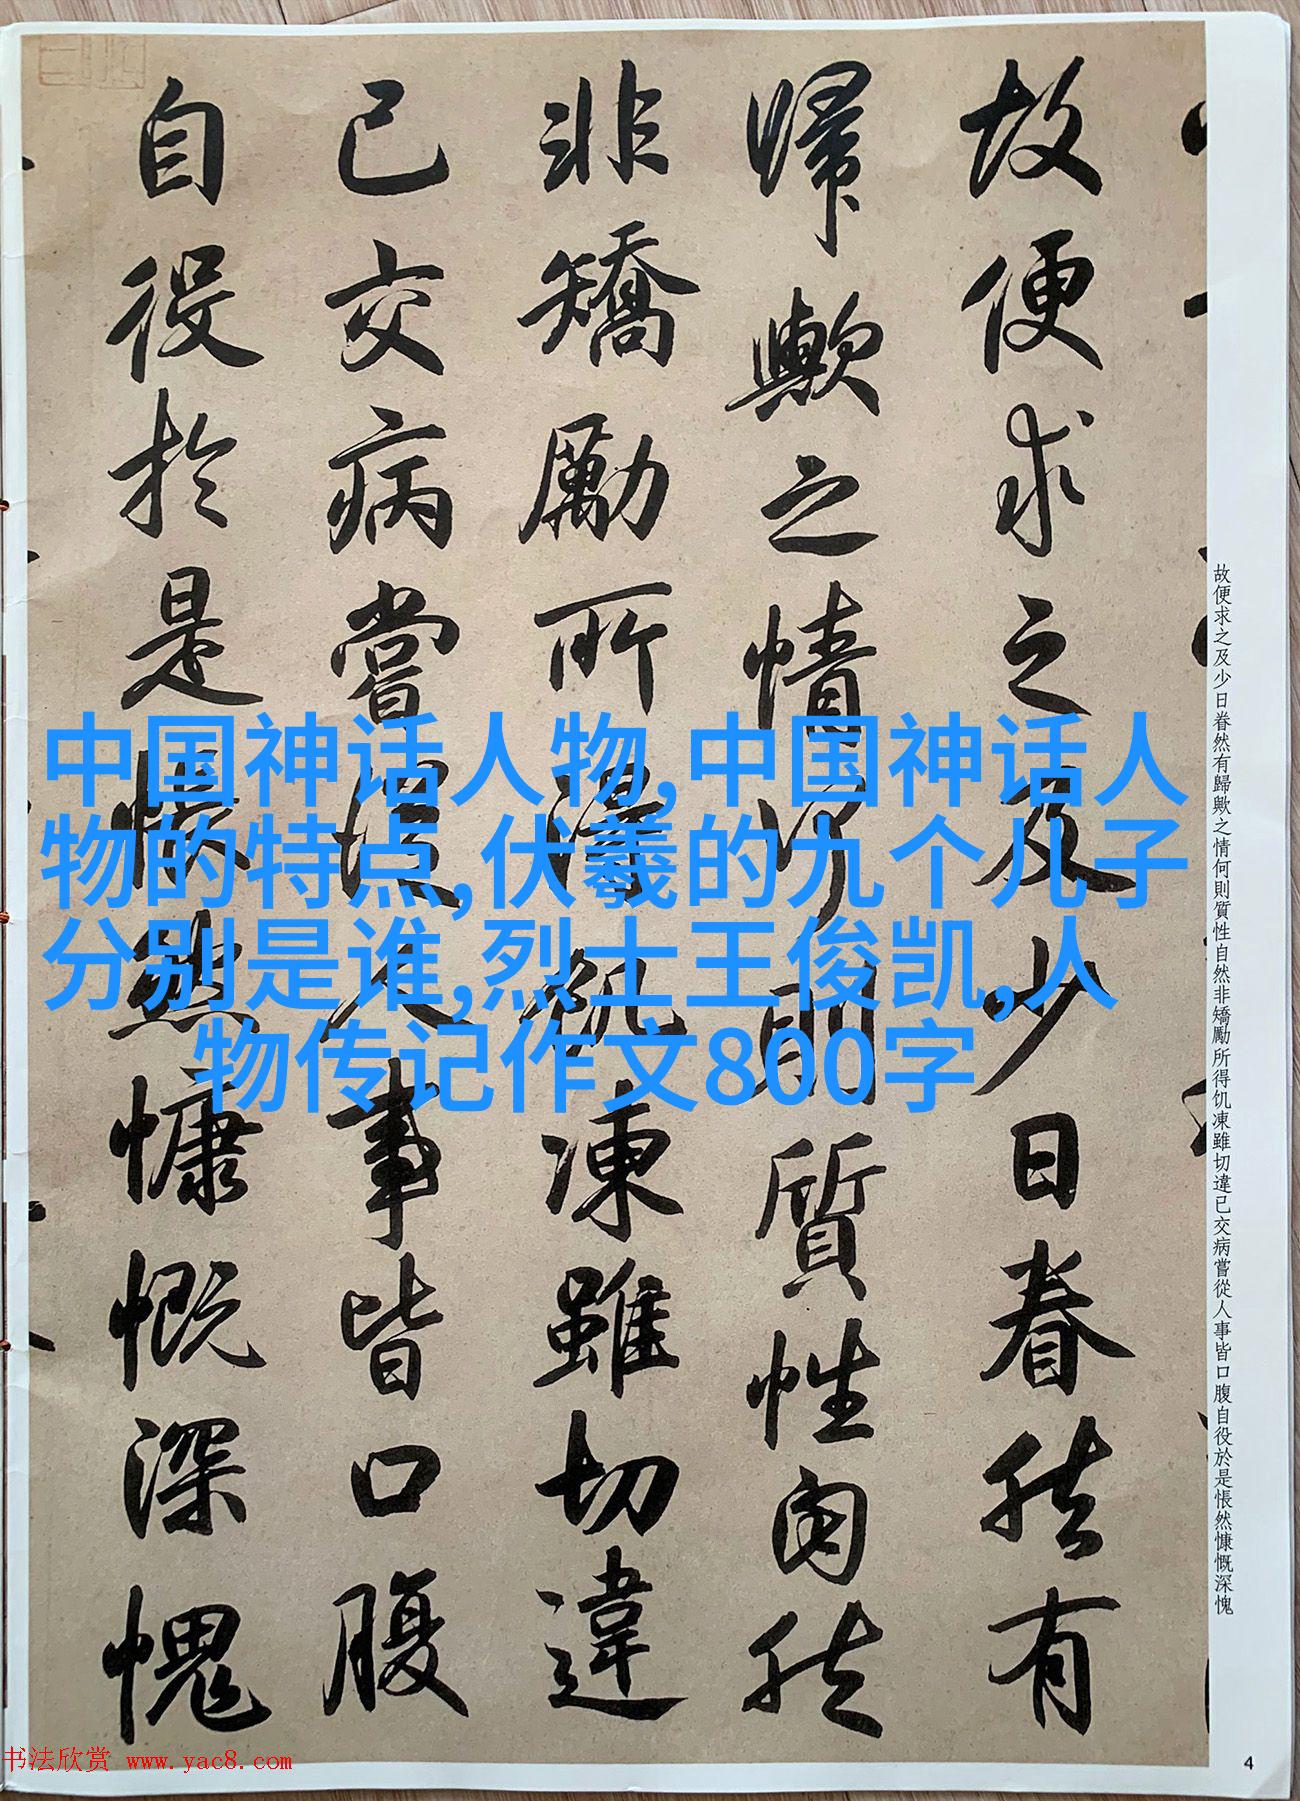 故便求之及少日眷然有
歸歟之情何則質性自然
非矯勵所得飢凍雖切違
已交病嘗從人事皆口腹
自役於是悵然慷慨深愧
故便求之及少日眷然有歸歟之情何則質性自然非矯勵所得饥凍雖切違已交病嘗從人事皆口腹自役於是悵然慷慨深愧
中国神话人物,中国神话人
物的特点,伏羲的九个儿子
分别是谁,烈士王俊凯,人
物传记作文800字
书法欣赏 www.yac8.com
4